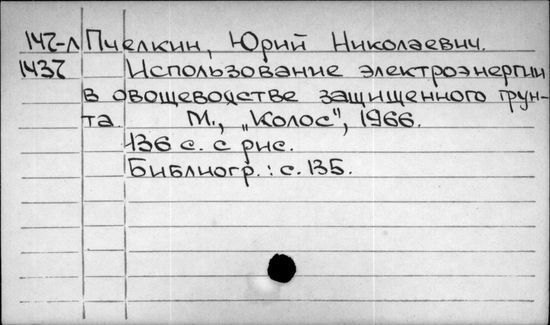 147-л Пчелкин, Юрий Николаевич.
1437 Использование электроэнергии
в овощеводстве защищенного грун-
та. М., „Колос", 1966.
136 с. с рис.
Библиогр.: с. 135.